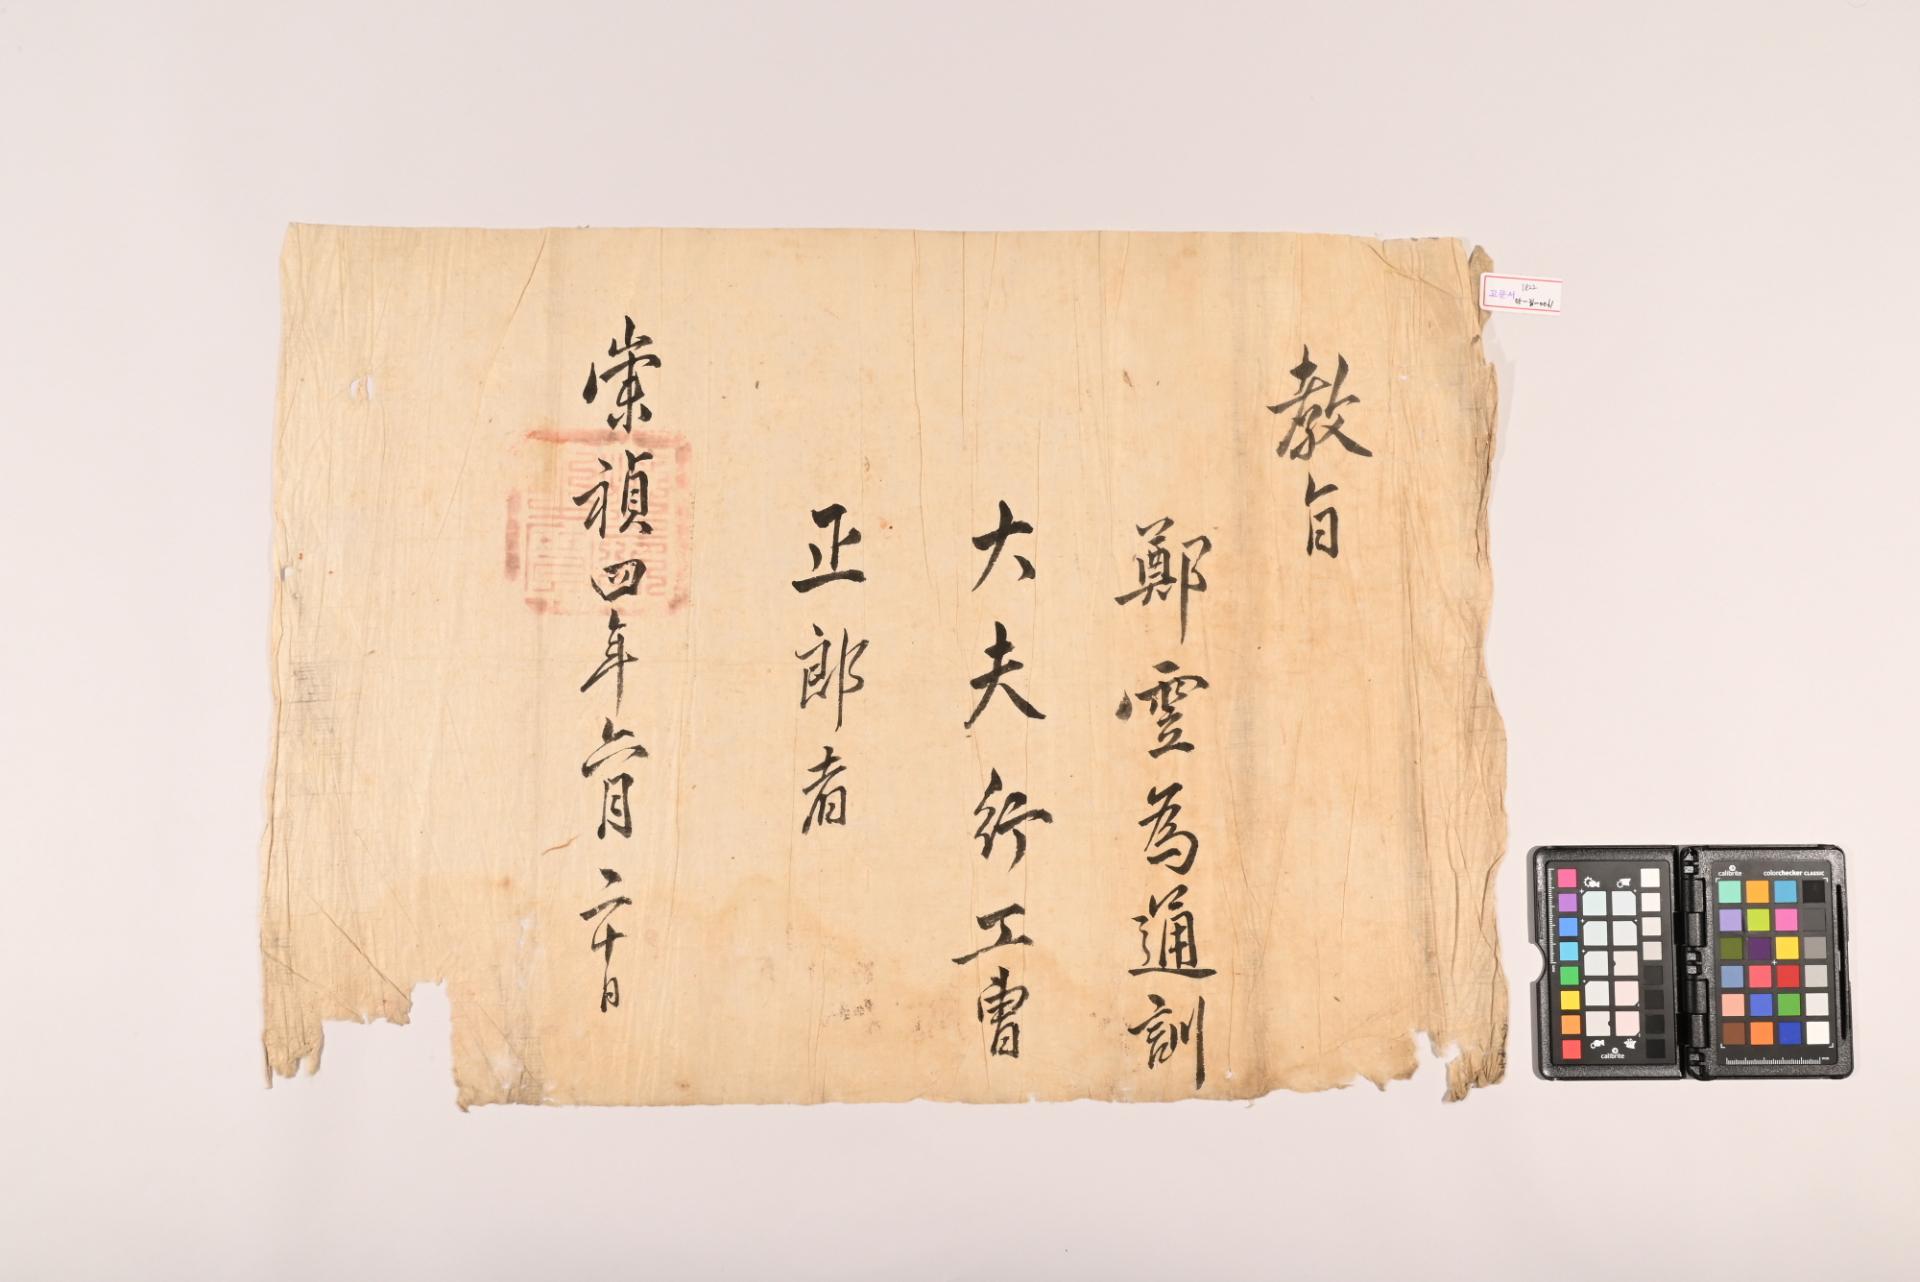 教旨
鄭雴為通訓
大夫行工曺
正郎者
崇禎四年六月二十日
고문서
1822
calibrite
calibrite colorchecker CLASSIC